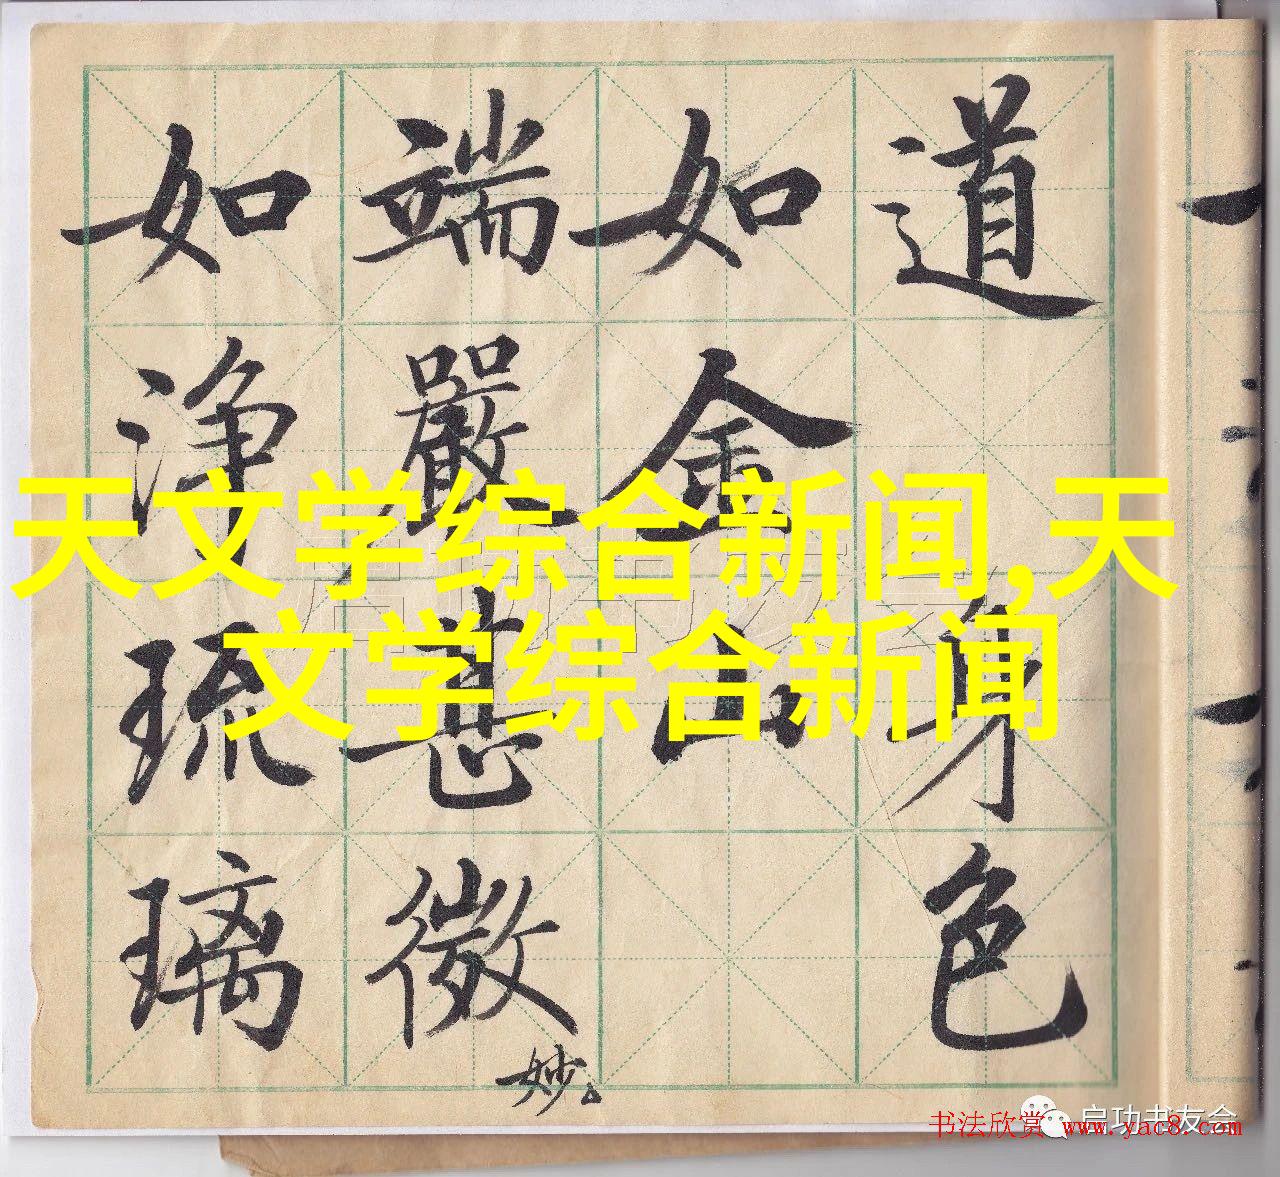 道 身色
如金山
端嚴甚微妙。
如淨琉璃
天文学综合新闻,天
文学综合新闻
启功书友会
书法欣赏 www.yac8.com